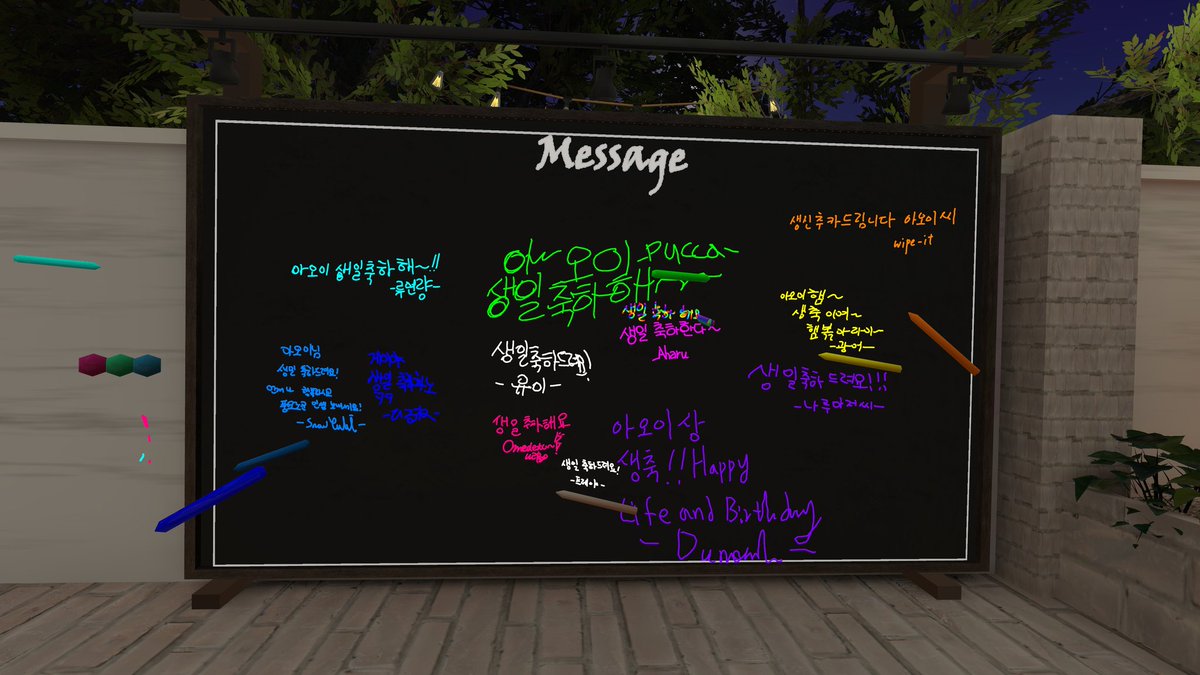 Message
생신추카드립니다 아오이씨
wipe-it
아오이 생일축하해~!!
-류연량-
아오이 pucca~
생일축하해~
생일 축하해요
생일 축하한다~
Aharu
아오이햄~
생축이여~
햄볶아라이~
-광어-
생일축하드려요!
-유이-
아오이님
생일 축하드려요!
-Snow
생일축하드려요!!!
-나루아저씨-
생일추카해요
Omedetou
생일 축하드려요!
-프레야-
아오이상
생축!! Happy
Life and Birthday